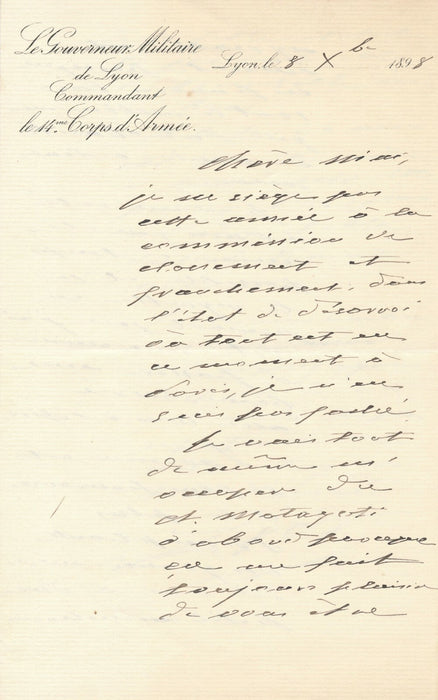 Le Gouverneur Militaire
de Lyon
Commandant
le 14me Corps d'Armée.
Lyon, le 8 Xbre 1898
Chère
je ne siège pas
cette année à la
commission de
classement et
franchement, dans
l'état de désarroi
où tout est en
ce moment à
Paris, je n'en
suis pas faché
Je vais tout
de même m'
occuper de
d'abord parce que
ça me fait
toujours plaisir
de vous être